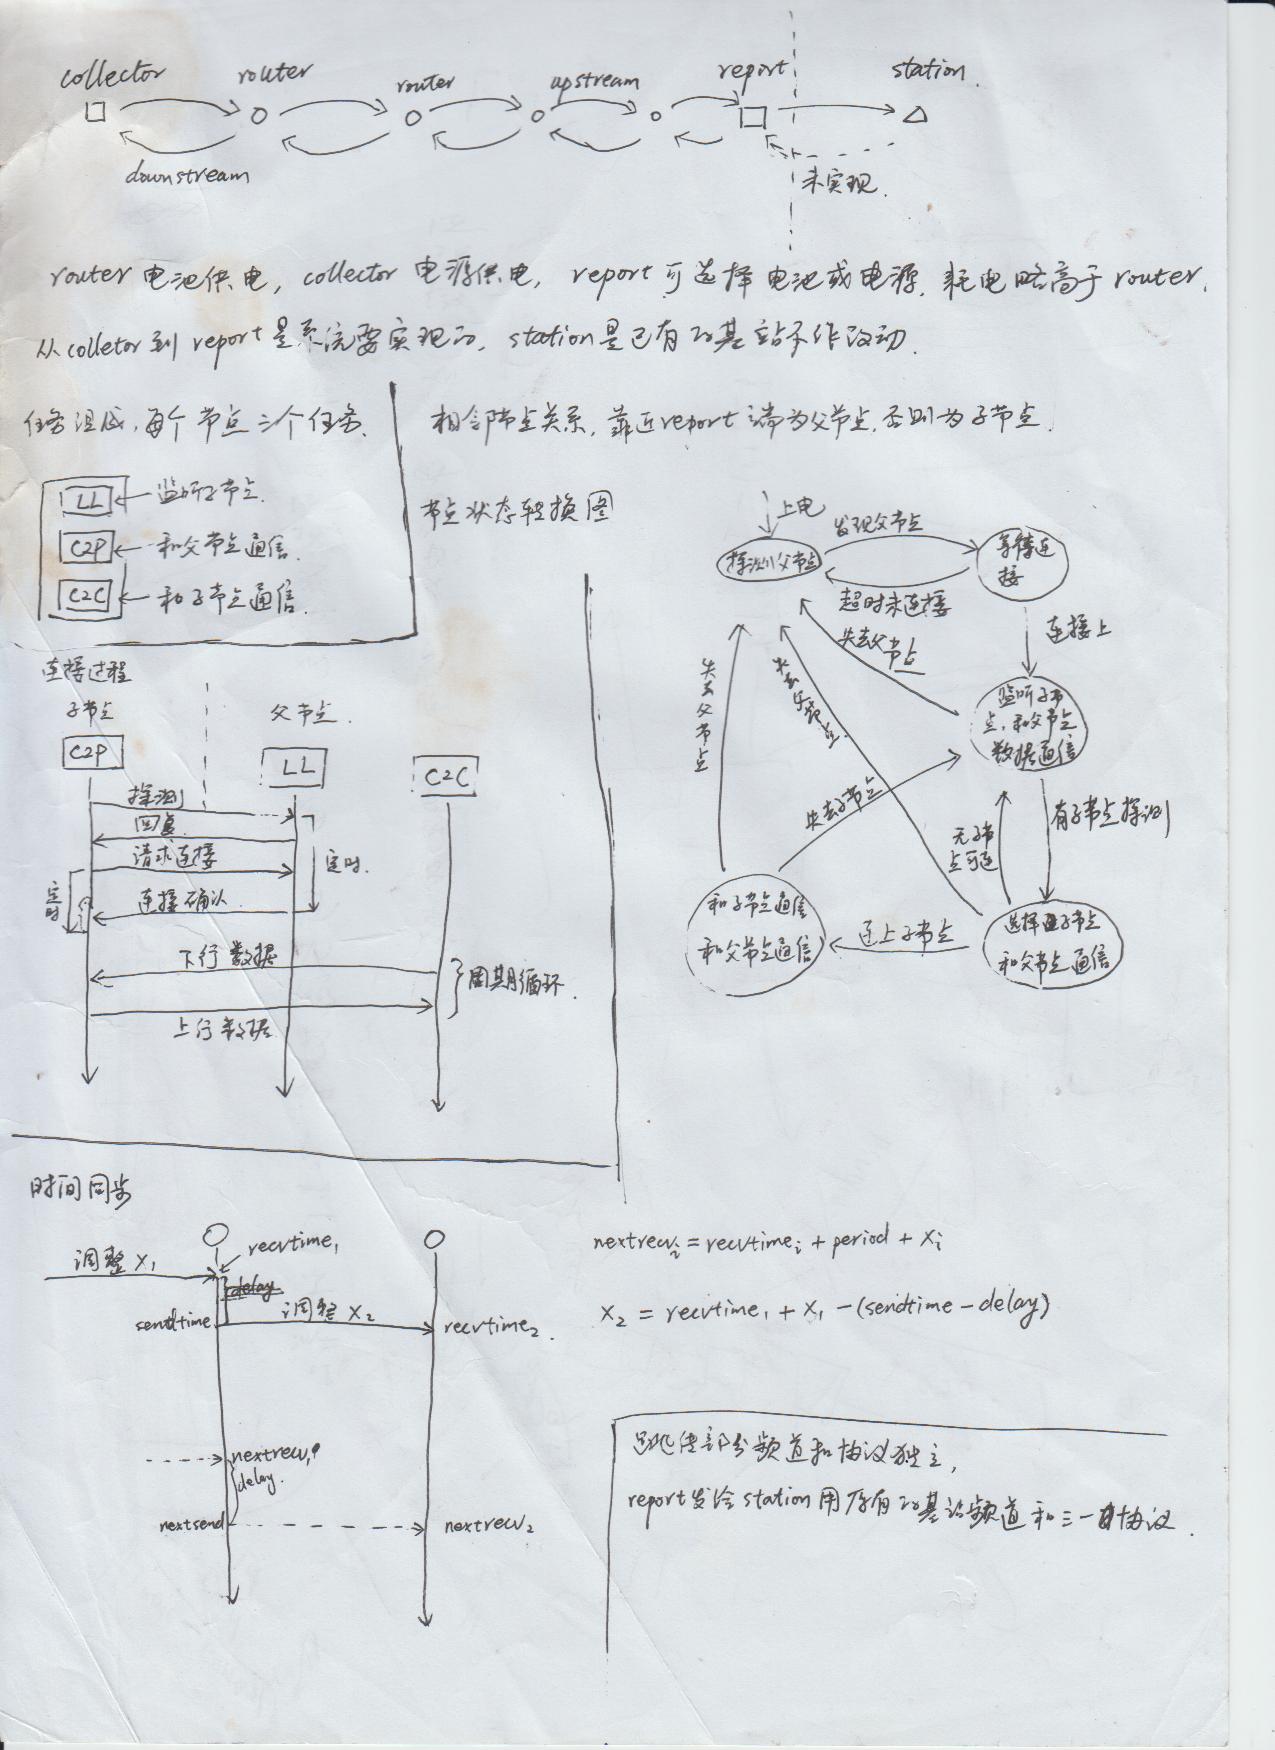 collector
router
router
upstream
report
station
downstream
未实现
router 电池供电, collector 电源供电, report 可选择电池或电源, 耗电略高于 router.
从 colletor 到 report 是系统要实现的, station 是已有的基站不作改动.
任务组成, 每个节点三个任务.
LL 监听子节点.
C2P 和父节点通信.
C2C 和子节点通信.
相邻节点关系, 靠近 report 端为父节点, 否则为子节点.
节点状态转换图
上电
探测父节点
发现父节点
等待连
接
超时未连接
连接上
失去父
节点
失去父节点
失去父节点
监听子节
点, 和父节点
数据通信
失去子节点
无子节
点可连
有子节点探测
和子节点通信
和父节点通信
连上子节点
选择子节点
和父节点通信
连接过程
子节点
父节点.
C2P
LL
C2C
探测
回复
请求连接
定时.
定时
连接确认
下行数据
周期循环.
上行数据
时间同步
调整 X₁
recvtime₁
delay
sendtime
调整 X₂
recvtime₂.
nextrecv₁
delay.
nextsend
nextrecv₂
nextrecvᵢ = recvtimeᵢ + period + Xᵢ
X₂ = recvtime₁ + X₁ - (sendtime - delay)
部分频道和协议独立,
report 发给 station 用原有的基站频道和三一协议.